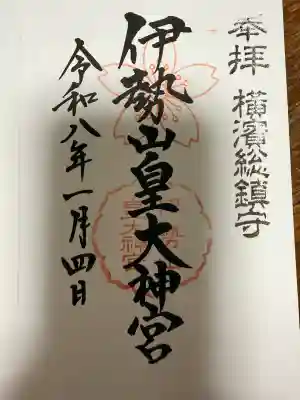 奉拝 横濱総鎮守
伊勢山皇大神宮
令和八年一月四日